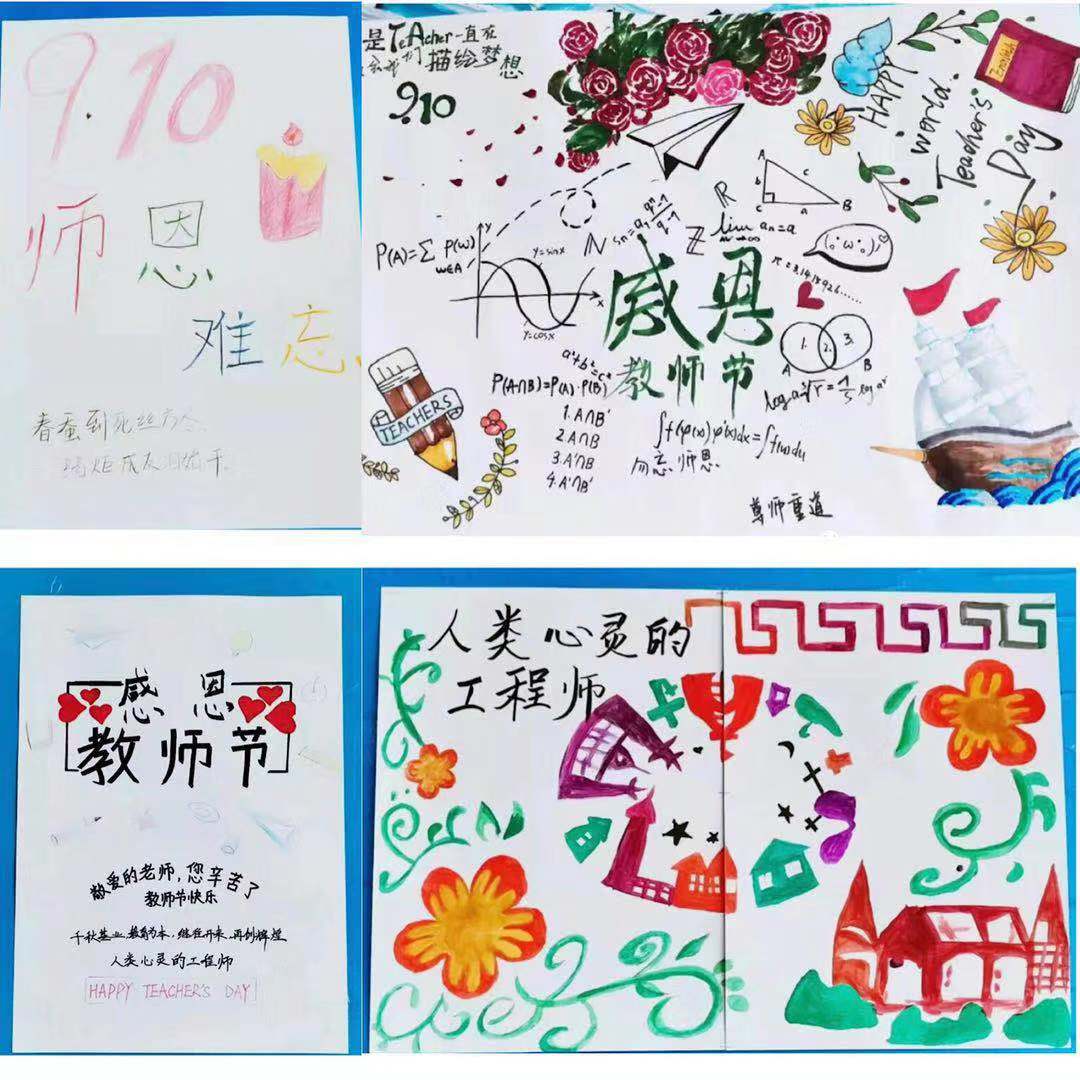 9.10
师恩
难忘
春蚕到死丝方尽
蜡炬成灰泪始干
是TeAcher一直在
描绘梦想
9.10
HAPPY
World
Teacher's
Day
English
P(A)=∑ P(w)
w∈A
y
x
y=sinx
y=cosx
N
R
Z
A
b
c
C
a
B
lim an=a
n→∞
π=3.1415926......
感恩
教师节
a²+b²=c²
P(A∩B)=P(A)·P(B)
1. A∩B'
2. A∩B
3. A'∩B
4. A'∩B'
1.
2.
3.
A
B
∫f(φ(x))φ'(x)dx=∫f(u)du
勿忘师恩
尊师重道
TEACHERS
感恩
教师节
敬爱的老师,您辛苦了
教师节快乐
千秋基业,教育为本,继往开来,再创辉煌
人类心灵的工程师
HAPPY TEACHER'S DAY
人类心灵的
工程师